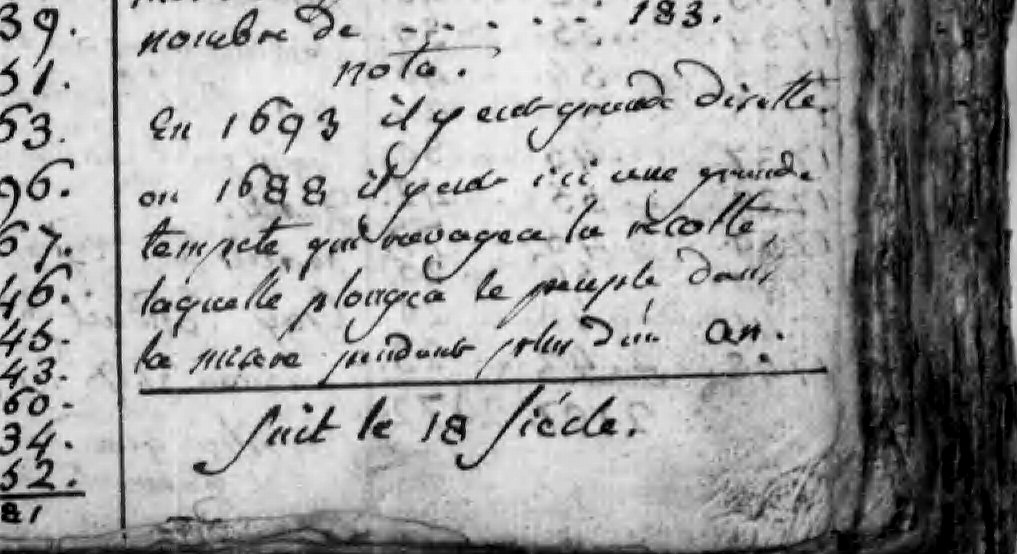 39.
51.
63.
96.
67.
46.
45.
43.
60.
34.
52.
81
nombre de . . . . . . 183.
nota.
En 1693 il y eut grande disette.
en 1688 il y eut ici une grande
tempete qui ravagea la récolte,
laquelle plongea le peuple dans
la misere pendant plus d'un an.
Suit le 18 Siécle.